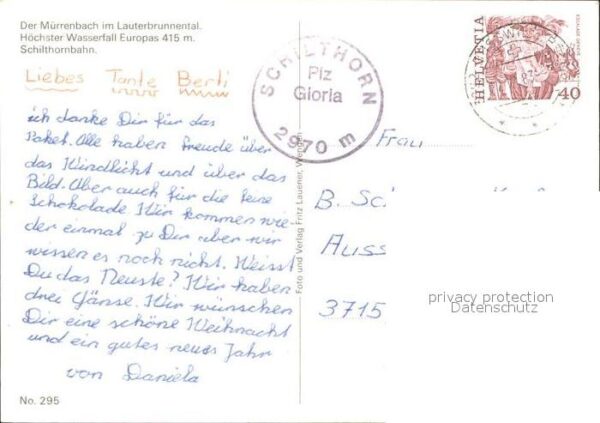 Der Mürrenbach im Lauterbrunnental.
Höchster Wasserfall Europas 415 m.
Schilthornbahn.
Liebes Tante Berti
ich danke Dir für das
Paket. Alle haben freude über
das Windlicht und über das
Bild. Aber auch für die feine
Schokolade Wir kommen wie-
der einmal zu Dir aber wir
wissen es noch nicht. Weisst
Du das Neuste? Wir haben
drei Gänse. Wir wünschen
Dir eine schöne Weihnacht
und ein gutes neues Jahr
von Daniela
No. 295
SCHILTHORN
Piz
Gloria
2970 m
Foto und Verlag Fritz Lauener, Wengen
HELVETIA
40
Frau
B. Sc
Auss
3715
privacy protection
Datenschutz